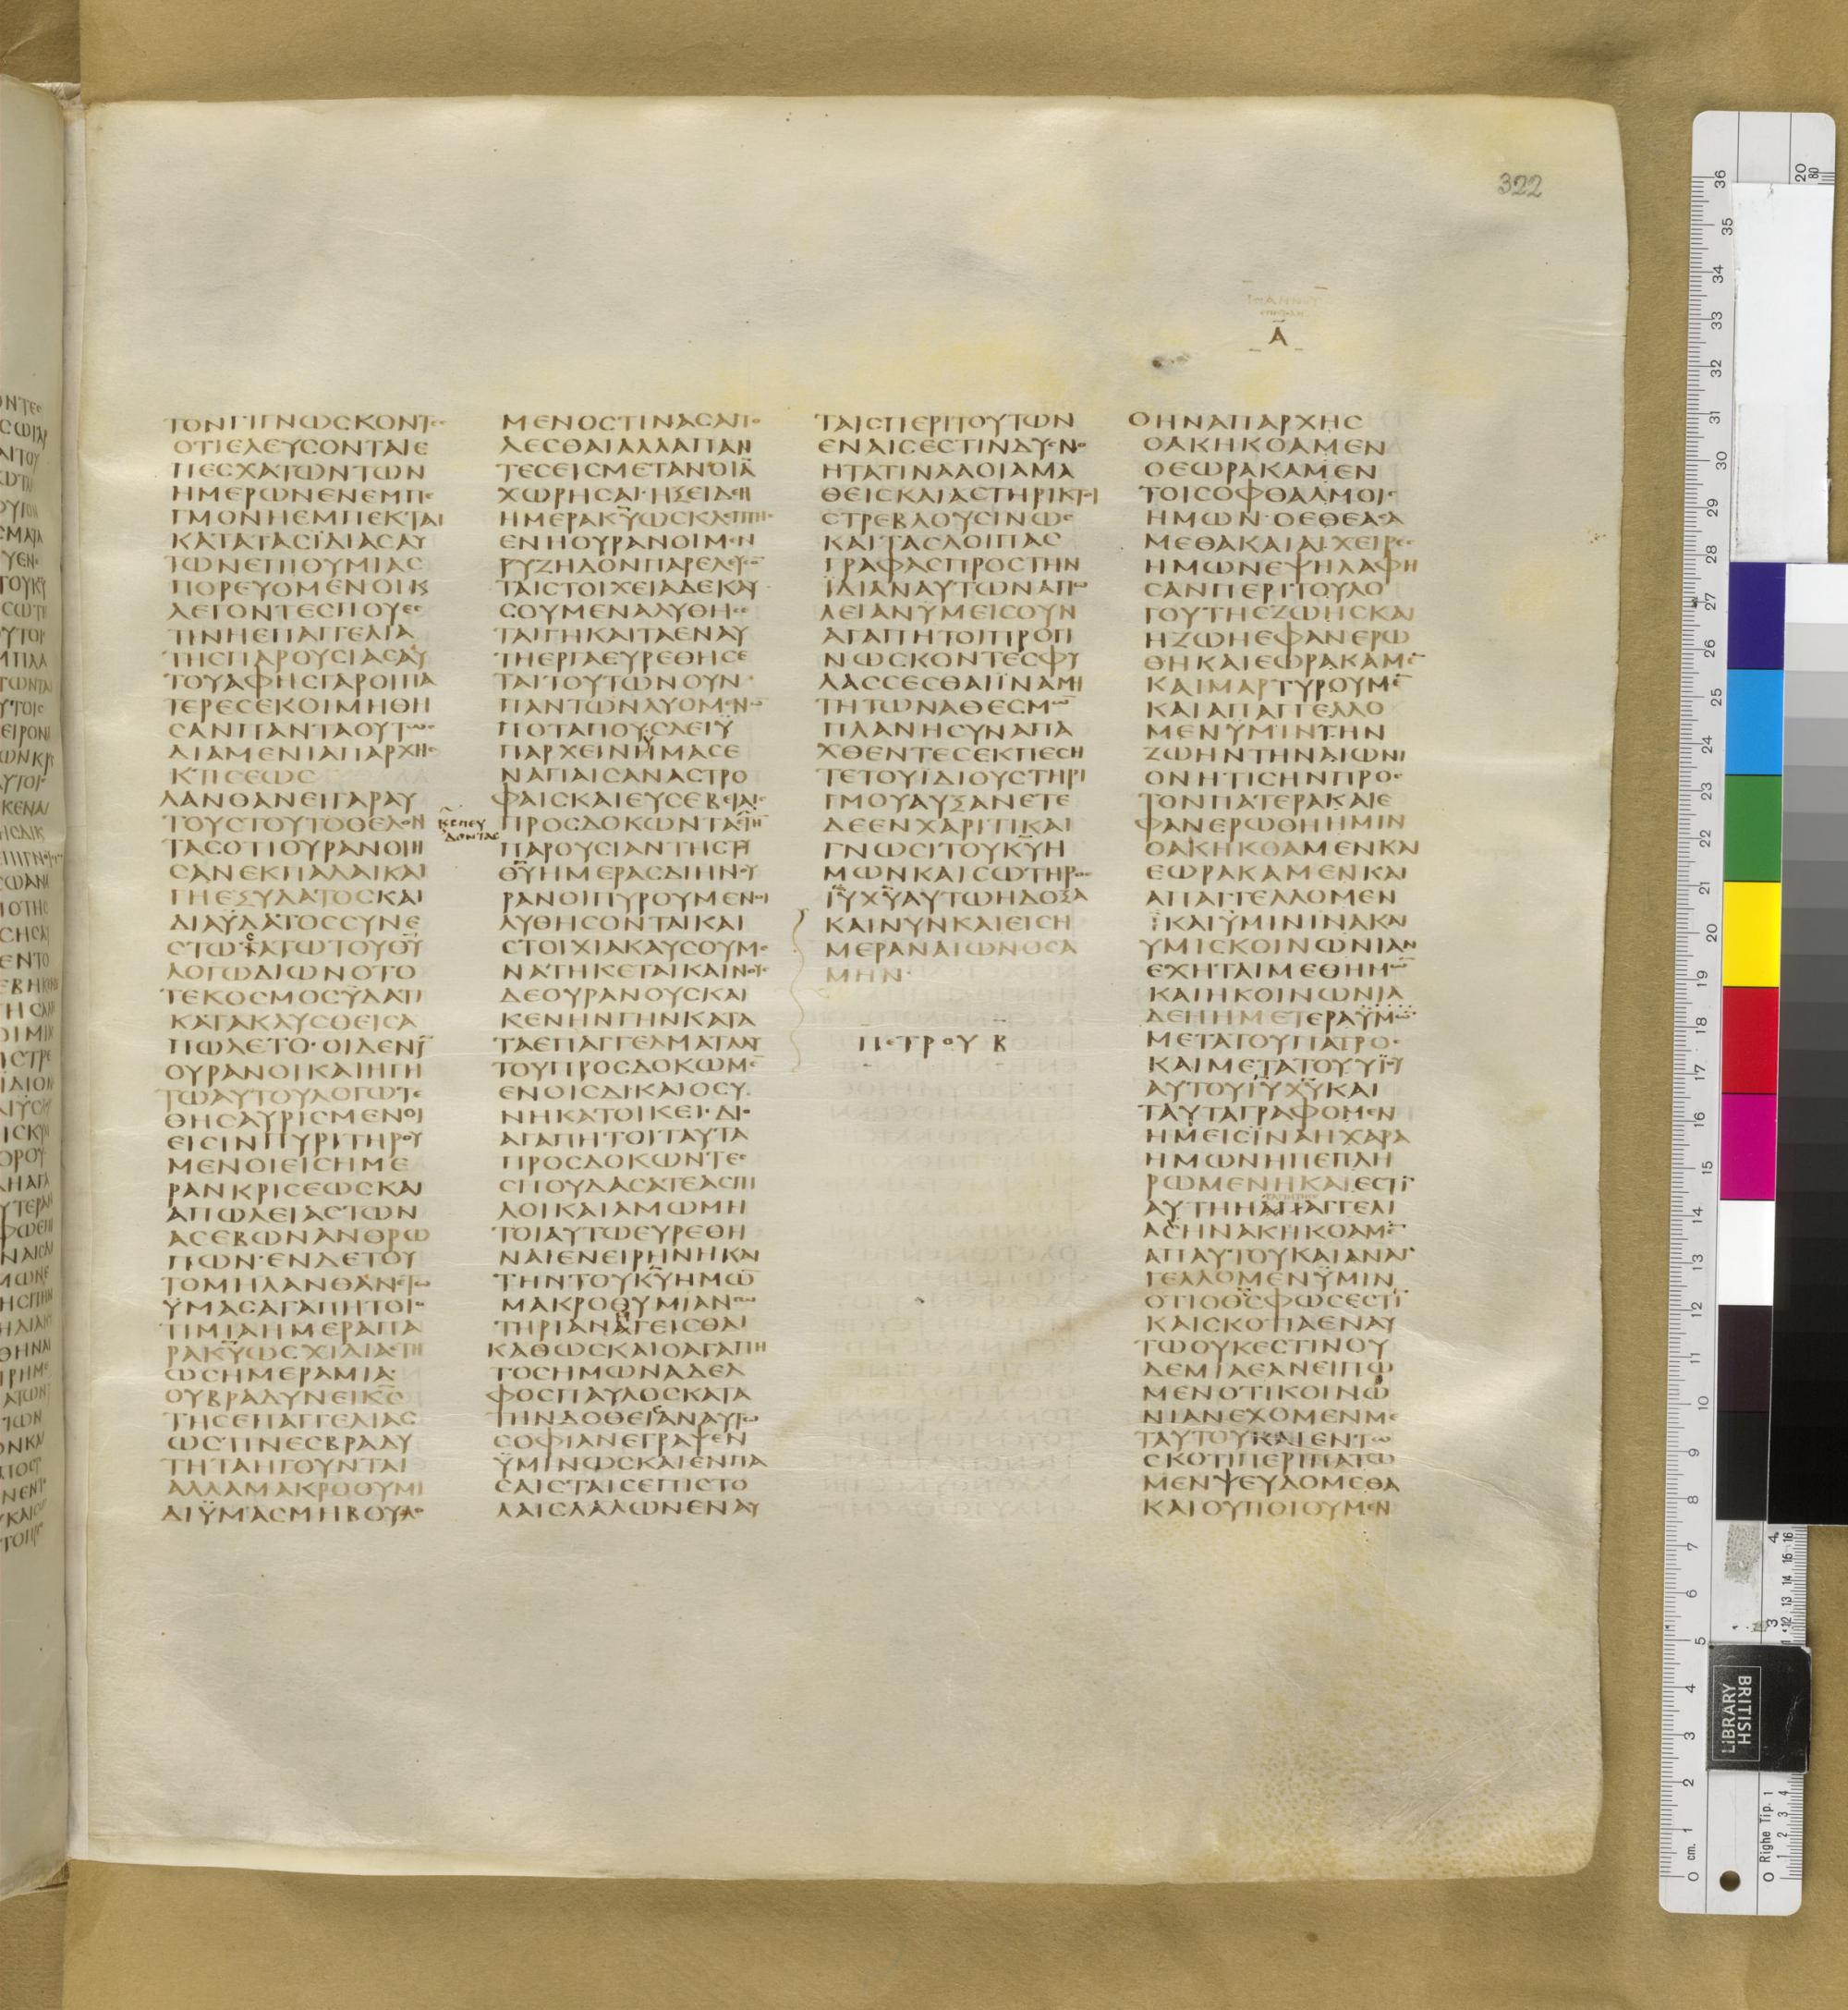 322
Α
ΤΟΝΓΙΓΝΩϹΚΟΝΤΕϹ
ΟΤΙΕΛΕΥϹΟΝΤΑΙΕ
ΠΕϹΧΑΤΩΝΤΩΝ
ΗΜΕΡΩΝΕΝΕΜΠΕ
ΓΜΟΝΗΕΜΠΕΚΤΑΙ
ΚΑΤΑΤΑϹΪΔΙΑϹΑΥ
ΤΩΝΕΠΙΘΥΜΙΑϹ
ΠΟΡΕΥΟΜΕΝΟΙΚ
ΛΕΓΟΝΤΕϹΠΟΥΕϹ
ΤΙΝΗΕΠΑΓΓΕΛΙΑ
ΤΗϹΠΑΡΟΥϹΙΑϹΑΥ
ΤΟΥΑΦΗϹΓΑΡΟΙΠΑ
ΤΕΡΕϹΕΚΟΙΜΗΘΗ
ϹΑΝΠΑΝΤΑΟΥΤΩϹ
ΔΙΑΜΕΝΙΑΠΑΡΧΗϹ
ΚΤΙϹΕΩϹ
ΛΑΝΘΑΝΕΙΓΑΡΑΥ
ΤΟΥϹΤΟΥΤΟΘΕΛΟΝ
ΤΑϹΟΤΙΟΥΡΑΝΟΙΗ
ϹΑΝΕΚΠΑΛΑΙΚΑΙ
ΓΗΕΞΥΔΑΤΟϹΚΑΙ
ΔΙΑΫΔΑΤΟϹϹΥΝΕ
ϹΤΩΤΑΤΩΤΟΥΘΥ
ΛΟΓΩΔΙΩΝΟΤΟ
ΤΕΚΟϹΜΟϹΫΔΑΤΙ
ΚΑΤΑΚΛΥϹΘΕΙϹΑ
ΠΩΛΕΤΟ·ΟΙΔΕΝΥ̅
ΟΥΡΑΝΟΙΚΑΙΗΓΗ
ΤΩΑΥΤΟΥΛΟΓΩΤΕ
ΘΗϹΑΥΡΙϹΜΕΝΟΙ
ΕΙϹΙΝΠΥΡΙΤΗΡΟΥ
ΜΕΝΟΙΕΙϹΗΜΕ
ΡΑΝΚΡΙϹΕΩϹΚΑΙ
ΑΠΩΛΕΙΑϹΤΩΝ
ΑϹΕΒΩΝΑΝΘΡΩ
ΠΩΝ·ΕΝΔΕΤΟΥ
ΤΟΜΗΛΑΝΘΑΝΕΤΩ
ΫΜΑϹΑΓΑΠΗΤΟΙΟ
ΤΙΜΙΑΗΜΕΡΑΠΑ
ΡΑΚΥ̅ΩϹΧΙΛΙΑΕΤΗ
ΩϹΗΜΕΡΑΜΙΑ·
ΟΥΒΡΑΔΥΝΕΙΚ̅Ϲ̅
ΤΗϹΕΠΑΓΓΕΛΙΑϹ
ΩϹΤΙΝΕϹΒΡΑΔΥ
ΤΗΤΑΗΓΟΥΝΤΑΙ
ΑΛΛΑΜΑΚΡΟΘΥΜΙ
ΔΙΫΜΑϹΜΗΒΟΥΛΟ
Κ̅ϹΠΕΥ
ΔΟΝΤΑϹ
ΜΕΝΟϹΤΙΝΑϹΑΠΟ
ΛΕϹΘΑΙΑΛΛΑΠΑΝ
ΤΕϹΕΙϹΜΕΤΑΝΟΙΑ̅
ΧΩΡΗϹΑΙ·ΗΞΕΙΔΕΗ
ΗΜΕΡΑΚΥ̅ΩϹΚΛΕΠΤΗϹ
ΕΝΗΟΥΡΑΝΟΙΜΕΝ
ΡΥΖΗΔΟΝΠΑΡΕΛΕΥϹΟ̅
ΤΑΙϹΤΟΙΧΕΙΑΔΕΚΑΥ
ϹΟΥΜΕΝΑΛΥΘΗϹΕ
ΤΑΙΓΗΚΑΙΤΑΕΝΑΥ
ΤΗΕΡΓΑΕΥΡΕΘΗϹΕ
ΤΑΙΤΟΥΤΩΝΟΥΝ
ΠΑΝΤΩΝΛΥΟΜΕΝΩ̅
ΠΟΤΑΠΟΥϹΔΕΙΫ
ΠΑΡΧΕΙΝΗΜΑϹΕ
ΝΑΓΙΑΙϹΑΝΑϹΤΡΟ
ΦΑΙϹΚΑΙΕΥϹΕΒΕΙΑΙϹ
ΠΡΟϹΔΟΚΩΝΤΑϹΤΗ̅
ΠΑΡΟΥϹΙΑΝΤΗϹΤΟΥ
ΘΥ̅ΗΜΕΡΑϹΔΙΗΝΟΥ
ΡΑΝΟΙΠΥΡΟΥΜΕΝΟΙ
ΛΥΘΗϹΟΝΤΑΙΚΑΙ
ϹΤΟΙΧΙΑΚΑΥϹΟΥΜΕ
ΝΑΤΗΚΕΤΑΙΚΑΙΝΟΥϹ
ΔΕΟΥΡΑΝΟΥϹΚΑΙ
ΚΕΝΗΝΓΗΝΚΑΤΑ
ΤΑΕΠΑΓΓΕΛΜΑΤΑΑΥ
ΤΟΥΠΡΟϹΔΟΚΩΜΕ̅
ΕΝΟΙϹΔΙΚΑΙΟϹΥ
ΝΗΚΑΤΟΙΚΕΙ·ΔΙΟ
ΑΓΑΠΗΤΟΙΤΑΥΤΑ
ΠΡΟϹΔΟΚΩΝΤΕϹ
ϹΠΟΥΔΑϹΑΤΕΑϹΠΙ
ΛΟΙΚΑΙΑΜΩΜΗ
ΤΟΙΑΥΤΩΕΥΡΕΘΗ
ΝΑΙΕΝΕΙΡΗΝΗΚΑΙ
ΤΗΝΤΟΥΚΥ̅ΗΜΩ̅
ΜΑΚΡΟΘΥΜΙΑΝϹΩ
ΤΗΡΙΑΝΑΓΕΙϹΘΑΙ
ΚΑΘΩϹΚΑΙΟΑΓΑΠΗ
ΤΟϹΗΜΩΝΑΔΕΛ
ΦΟϹΠΑΥΛΟϹΚΑΤΑ
ΤΗΝΔΟΘΕΙϹΑΝΑΥΤΩ
ϹΟΦΙΑΝΕΓΡΑΨΕΝ
ΫΜΙΝΩϹΚΑΙΕΝΠΑ
ϹΑΙϹΤΑΙϹΕΠΙϹΤΟ
ΛΑΙϹΛΑΛΩΝΕΝΑΥ
ΤΑΙϹΠΕΡΙΤΟΥΤΩΝ
ΕΝΑΙϹΕϹΤΙΝΔΥϹΝΟ
ΗΤΑΤΙΝΑΑΟΙΑΜΑ
ΘΕΙϹΚΑΙΑϹΤΗΡΙΚΤΟΙ
ϹΤΡΕΒΛΟΥϹΙΝΩϹ
ΚΑΙΤΑϹΛΟΙΠΑϹ
ΓΡΑΦΑϹΠΡΟϹΤΗΝ
ΪΔΙΑΝΑΥΤΩΝΑΠΩ
ΛΕΙΑΝΥΜΕΙϹΟΥΝ
ΑΓΑΠΗΤΟΙΠΡΟΓΙ
ΝΩϹΚΟΝΤΕϹΦΥ
ΛΑϹϹΕϹΘΑΙΪΝΑΜΙ
ΤΗΤΩΝΑΘΕϹΜΩ̅
ΠΛΑΝΗϹΥΝΑΠΑ
ΧΘΕΝΤΕϹΕΚΠΕϹΗ
ΤΕΤΟΥΪΔΙΟΥϹΤΗΡΙ
ΓΜΟΥΑΥΞΑΝΕΤΕ
ΔΕΕΝΧΑΡΙΤΙΚΑΙ
ΓΝΩϹΙΤΟΥΚΥ̅Η
ΜΩΝΚΑΙϹΩΤΗΡΟϹ
ΙΥ̅ΧΥ̅ΑΥΤΩΗΔΟΞΑ
ΚΑΙΝΥΝΚΑΙΕΙϹΗ
ΜΕΡΑΝΑΙΩΝΟϹΑ
ΜΗΝ·
ΠΕΤΡΟΥ Β
ΟΗΝΑΠΑΡΧΗϹ
ΟΑΚΗΚΟΑΜΕΝ
ΟΕΩΡΑΚΑΜΕΝ
ΤΟΙϹΟΦΘΑΛΜΟΙϹ
ΗΜΩΝ·ΟΕΘΕΑϹΑ
ΜΕΘΑΚΑΙΑΙΧΕΙΡΕϹ
ΗΜΩΝΕΨΗΛΑΦΗ
ϹΑΝΠΕΡΙΤΟΥΛΟ
ΓΟΥΤΗϹΖΩΗϹΚΑΙ
ΗΖΩΗΕΦΑΝΕΡΩ
ΘΗΚΑΙΕΩΡΑΚΑΜΕ̅
ΚΑΙΜΑΡΤΥΡΟΥΜΕ̅
ΚΑΙΑΠΑΓΓΕΛΛΟ
ΜΕΝΥΜΙΝΤΗΝ
ΖΩΗΝΤΗΝΑΙΩΝΙ
ΟΝΗΤΙϹΗΝΠΡΟϹ
ΤΟΝΠΑΤΕΡΑΚΑΙΕ
ΦΑΝΕΡΩΘΗΗΜΙΝ
ΟΑΚΗΚΟΑΜΕΝΚΑΙ
ΕΩΡΑΚΑΜΕΝΚΑΙ
ΑΠΑΓΓΕΛΛΟΜΕΝ
ΚΑΙΫΜΙΝΙΝΑΚΑΙ
ΥΜΙϹΚΟΙΝΩΝΙΑΝ
ΕΧΗΤΑΙΜΕΘΗΜΩ̅
ΚΑΙΗΚΟΙΝΩΝΙΑ
ΔΕΗΗΜΕΤΕΡΑΫΜΩ̅
ΜΕΤΑΤΟΥΠΑΤΡΟϹ
ΚΑΙΜΕΤΑΤΟΥΥΪΟΥ
ΑΥΤΟΥΙΥ̅ΧΥ̅ΚΑΙ
ΤΑΥΤΑΓΡΑΦΟΜΕΝ
ΗΜΕΙϹΪΝΑΗΧΑΡΑ
ΗΜΩΝΗΠΕΠΛΗ
ΡΩΜΕΝΗΚΑΙΕϹΤΙ̅
ΑΥΤΗΗΑΠΑΓΓΕΛΙ
ΑϹΗΝΑΚΗΚΟΑΜΕ̅
ΑΠΑΥΤΟΥΚΑΙΑΝΑΓ
ΓΕΛΛΟΜΕΝΫΜΙΝ
ΟΤΙΟΘ̅Ϲ̅ΦΩϹΕϹΤΙ̅
ΚΑΙϹΚΟΤΙΑΕΝΑΥ
ΤΩΟΥΚΕϹΤΙΝΟΥ
ΔΕΜΙΑΕΑΝΕΙΠΩ
ΜΕΝΟΤΙΚΟΙΝΩ
ΝΙΑΝΕΧΟΜΕΝΜΕ
ΤΑΥΤΟΥΚΑΙΕΝΤΩ
ϹΚΟΤΙΠΕΡΙΠΑΤΩ
ΜΕΝΨΕΥΔΟΜΕΘΑ
ΚΑΙΟΥΠΟΙΟΥΜΕΝ
BRITISH
LIBRARY